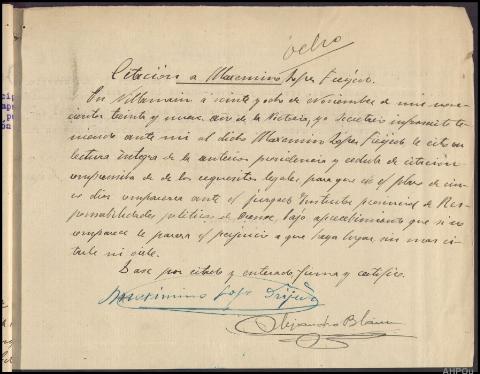 ocho
Citación a Maximino Lopez Feijóo.
En Villamarin a veinte y ocho de Noviembre de mil nove-
cientos treinta y nueve año de la Victoria, yo Secretario infrascrito te-
niendo ante mi al dicho Maximino Lopez Feijóo le cité con
lectura integra de la anterior providencia y cedula de citación
comprensiva de los requisitos legales para que en el plazo de cin-
co dias comparezca ante el Juzgado Instructor provincial de Res-
ponsabilidades politicas de Orense, bajo apercibimiento que si no
comparece le parará el perjuicio a que haya lugar sin mas ci-
tarle ni oirle.
Se dá por citado y enterado, firma y certifico.
Maximino Lopez Feijóo
Alejandro Blanco
AHPOu